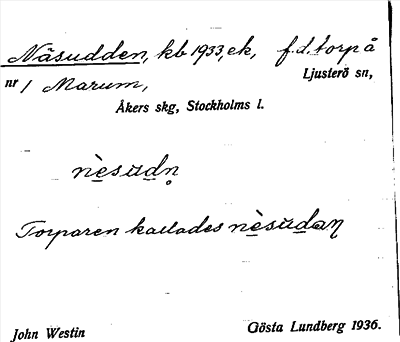 Näsudden, kb 1933, ek, f.d. torp å
nr 1 Marum, Ljusterö sn,
Åkers skg, Stockholms l.
nè̱sŭd̲n̥
Torparen kallades nè̱sŭd̲aɳ
John Westin Gösta Lundberg 1936.